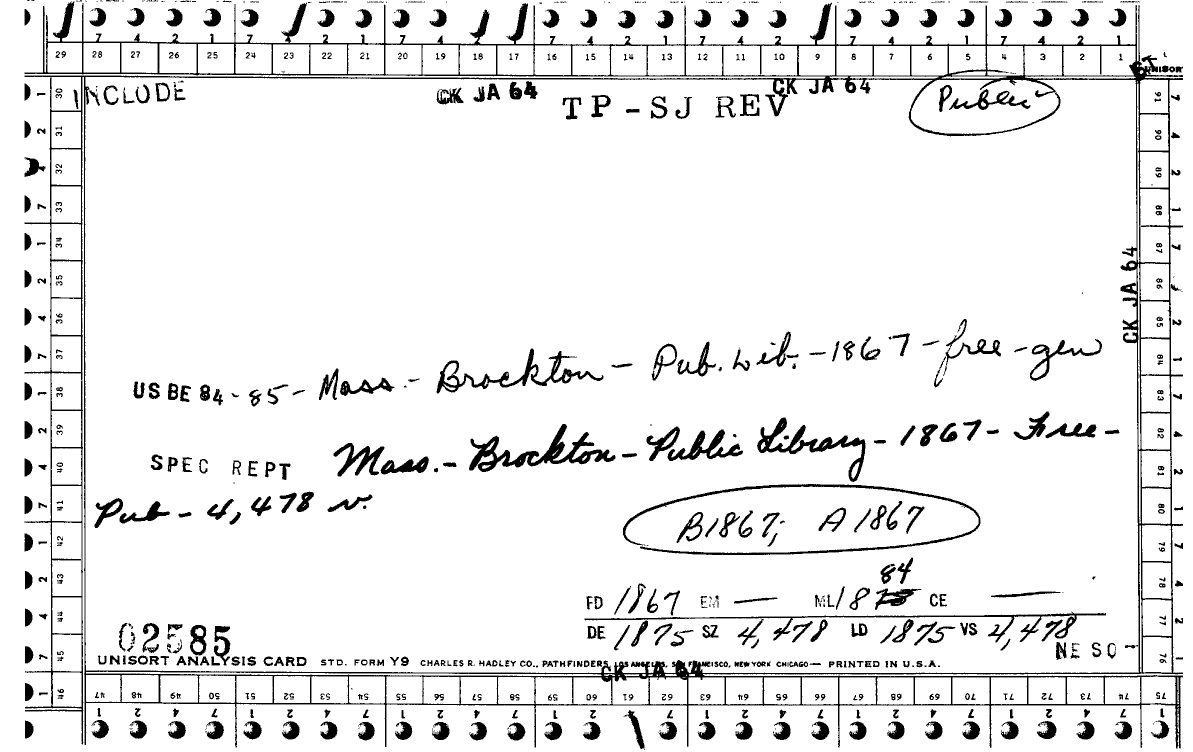 7 4 2 1 7 4 2 1 7 4 2 1 7 4 2 1 7 4 2 1 7 4 2 1 7 4 2 1
29 28 27 26 25 24 23 22 21 20 19 18 17 16 15 14 13 12 11 10 9 8 7 6 5 4 3 2 1 UNISORT
INCLUDE CK JA 64 TP-SJ REV CK JA 64 Public
CK JA 64
US BE 84-85- Mass.- Brockton- Pub. Lib.-1867-free-gen
SPEC REPT Mass.- Brockton- Public Library-1867-Free-
Pub-4,478 v.
B1867; A1867
84
FD 1867 EM — ML 1875 CE —
DE 1875 SZ 4,478 LD 1875 VS 4,478
02585 NE SO-
UNISORT ANALYSIS CARD STD. FORM Y9 CHARLES R. HADLEY CO., PATHFINDERS, LOS ANGELES, SAN FRANCISCO, NEW YORK CHICAGO— PRINTED IN U.S.A.
CK JA 64
46 47 48 49 50 51 52 53 54 55 56 57 58 59 60 61 62 63 64 65 66 67 68 69 70 71 72 73 74 75